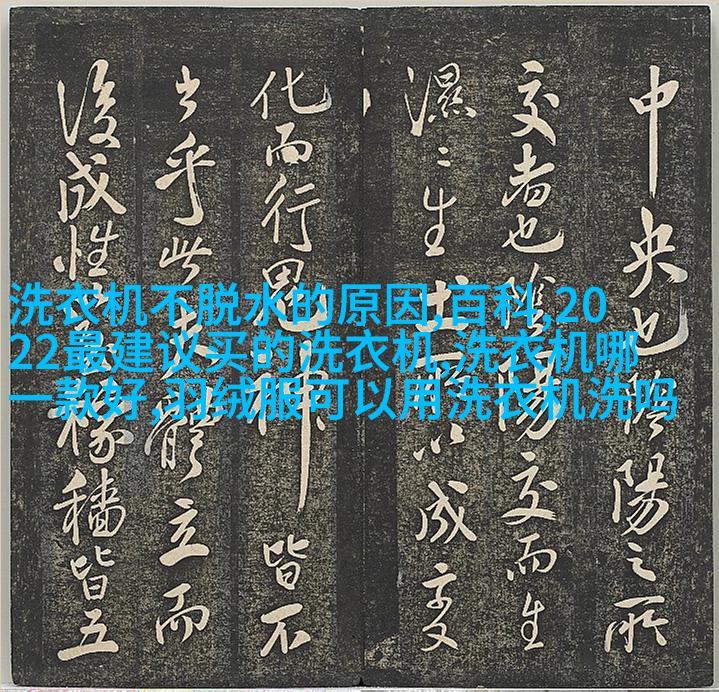 洗衣机不脱水的原因,百科,20
22最建议买的洗衣机,洗衣机哪
一款好,羽绒服可以用洗衣机洗吗
中央也陰陽之所
交者也陰陽交而生
濕〻生土以成變
化而行鬼神皆不
出乎此夫體立而
後成性稼穡皆五